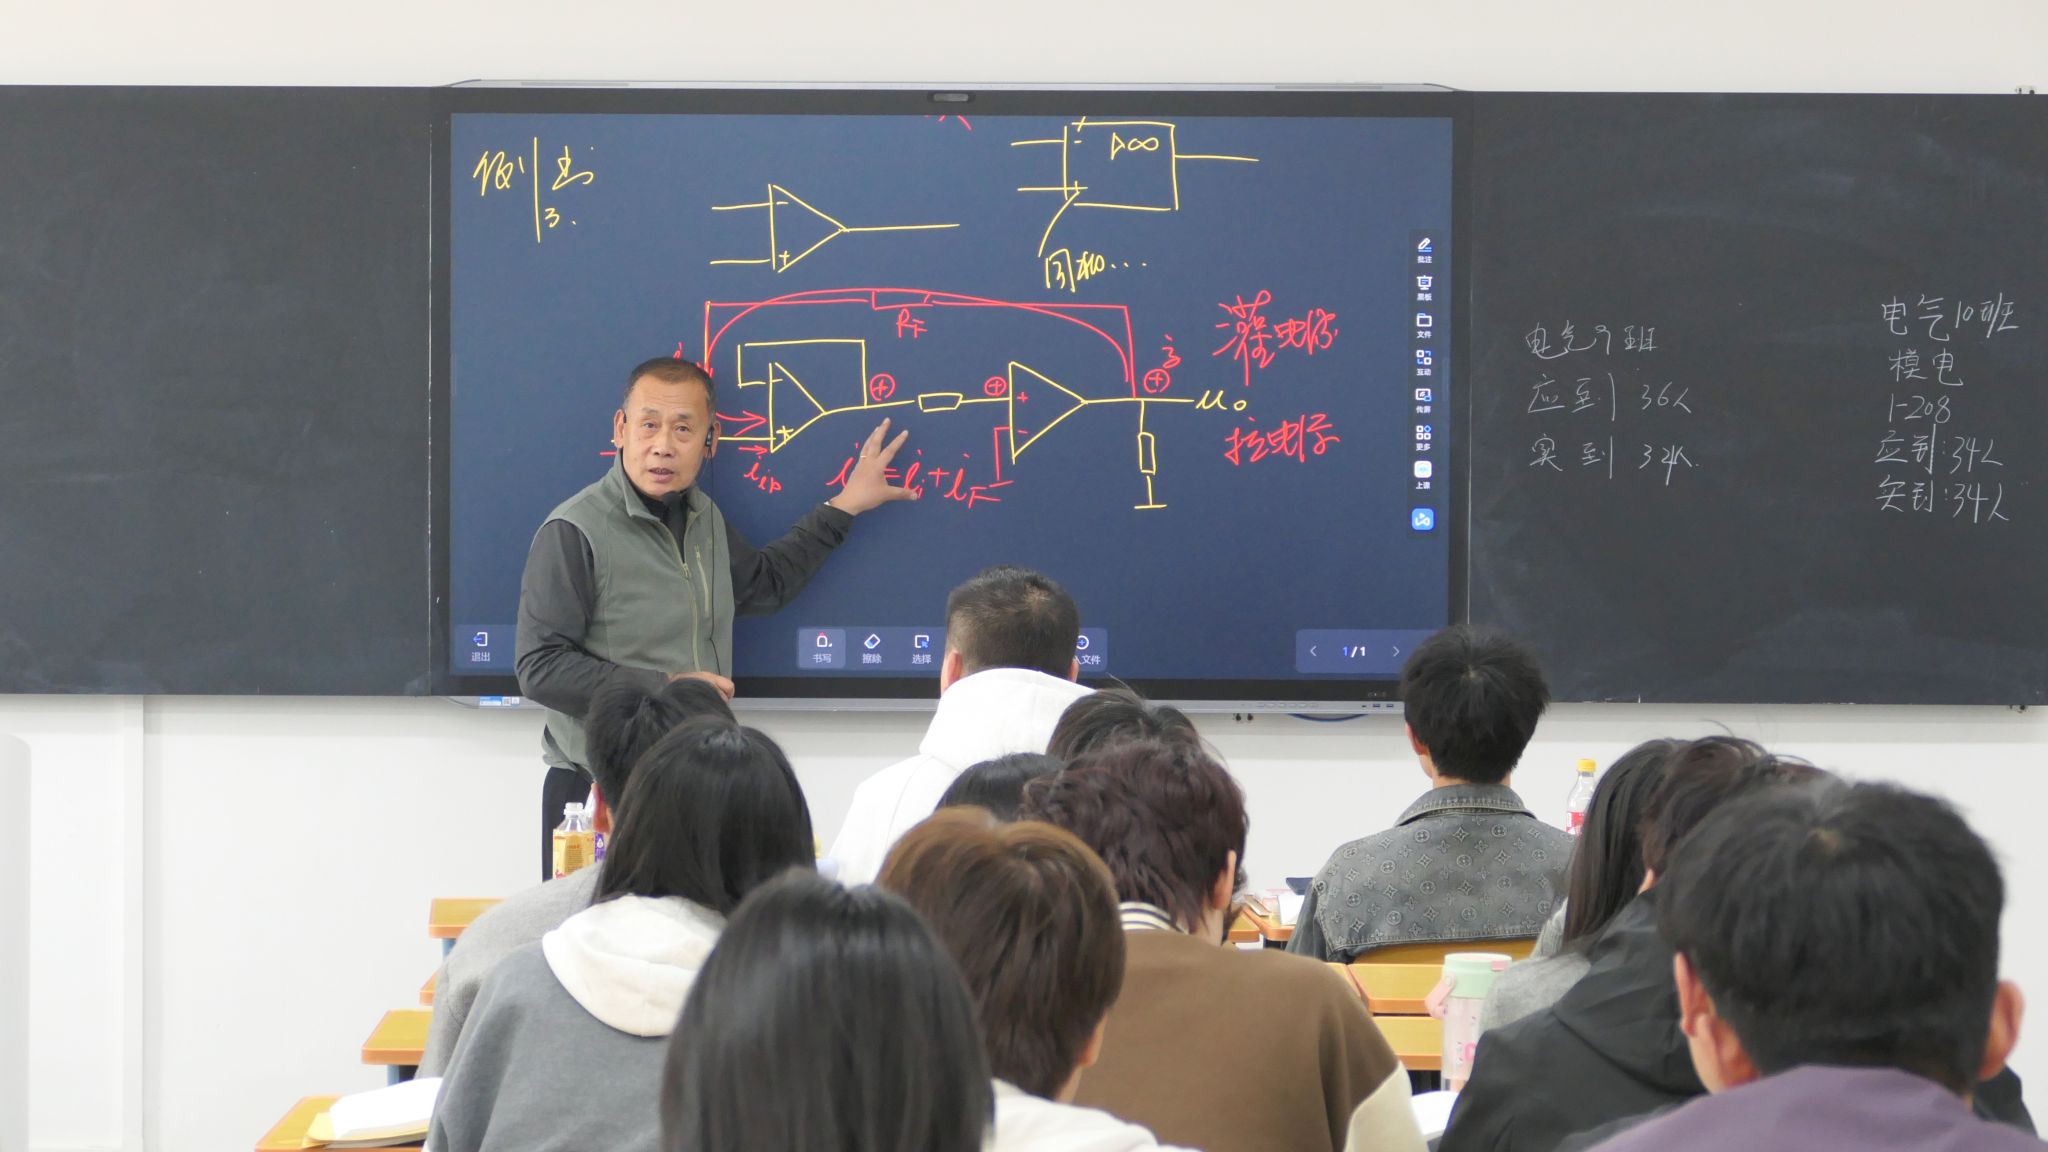 例
3.
▷∞
同相...
RF
灌电流
拉电流
uo
=ii+iF
批注
黑板
文件
互动
传屏
更多
上课
退出
书写
擦除
选择
入文件
1/1
电气9班
应到 36人
实到 32人.
电气10班
模电
1-208
应到:34人
实到:34人